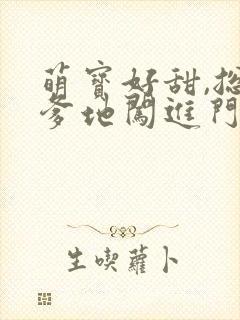 萌寶好甜,總
爹地闖進門
生喫蘿卜